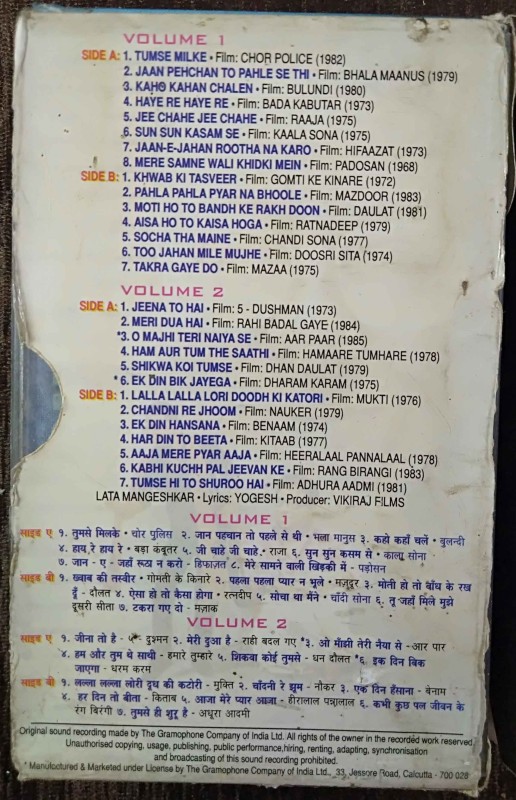 VOLUME 1
SIDE A: 1. TUMSE MILKE • Film: CHOR POLICE (1982)
2. JAAN PEHCHAN TO PAHLE SE THI • Film: BHALA MAANUS (1979)
3. KAHO KAHAN CHALEN • Film: BULUNDI (1980)
4. HAYE RE HAYE RE • Film: BADA KABUTAR (1973)
5. JEE CHAHE JEE CHAHE • Film: RAAJA (1975)
6. SUN SUN KASAM SE • Film: KAALA SONA (1975)
7. JAAN-E-JAHAN ROOTHA NA KARO • Film: HIFAAZAT (1973)
8. MERE SAMNE WALI KHIDKI MEIN • Film: PADOSAN (1968)
SIDE B: 1. KHWAB KI TASVEER • Film: GOMTI KE KINARE (1972)
2. PAHLA PAHLA PYAR NA BHOOLE • Film: MAZDOOR (1983)
3. MOTI HO TO BANDH KE RAKH DOON • Film: DAULAT (1981)
4. AISA HO TO KAISA HOGA • Film: RATNADEEP (1979)
5. SOCHA THA MAINE • Film: CHANDI SONA (1977)
6. TOO JAHAN MILE MUJHE • Film: DOOSRI SITA (1974)
7. TAKRA GAYE DO • Film: MAZAA (1975)
VOLUME 2
SIDE A: 1. JEENA TO HAI • Film: 5 - DUSHMAN (1973)
2. MERI DUA HAI • Film: RAHI BADAL GAYE (1984)
*3. O MAJHI TERI NAIYA SE • Film: AAR PAAR (1985)
4. HAM AUR TUM THE SAATHI • Film: HAMAARE TUMHARE (1978)
5. SHIKWA KOI TUMSE • Film: DHAN DAULAT (1979)
* 6. EK DIN BIK JAYEGA • Film: DHARAM KARAM (1975)
SIDE B: 1. LALLA LALLA LORI DOODH KI KATORI • Film: MUKTI (1976)
2. CHANDNI RE JHOOM • Film: NAUKER (1979)
3. EK DIN HANSANA • Film: BENAAM (1974)
4. HAR DIN TO BEETA • Film: KITAAB (1977)
5. AAJA MERE PYAR AAJA • Film: HEERALAAL PANNALAAL (1978)
6. KABHI KUCHH PAL JEEVAN KE • Film: RANG BIRANGI (1983)
7. TUMSE HI TO SHUROO HAI • Film: ADHURA AADMI (1981)
LATA MANGESHKAR • Lyrics: YOGESH • Producer: VIKIRAJ FILMS
VOLUME 1
साइड ए १. तुमसे मिलके • चोर पुलिस २. जान पहचान तो पहले से थी • भला मानुस ३. कहो कहाँ चलें • बुलन्दी
४. हाय रे हाय रे • बड़ा कबूतर ५. जी चाहे जी चाहे • राजा ६. सुन सुन कसम से • काला सोना •
७. जान - ए - जहाँ रूठा न करो - हिफाज़त ८. मेरे सामने वाली खिड़की में - पड़ोसन
साइड बी १. ख्वाब की तस्वीर • गोमती के किनारे २. पहला पहला प्यार न भूले • मज़दूर ३. मोती हो तो बाँध के रख
दूँ - दौलत ४. ऐसा हो तो कैसा होगा • रत्नदीप ५. सोचा था मैंने • चाँदी सोना ६. तू जहाँ मिले मुझे
दूसरी सीता ७. टकरा गए दो - मज़ाक
VOLUME 2
साइड ए १. जीना तो है - ५ दुश्मन २. मेरी दुआ है - राही बदल गए *३. ओ माँझी तेरी नैया से - आर पार
४. हम और तुम थे साथी - हमारे तुम्हारे ५. शिकवा कोई तुमसे - धन दौलत *६. इक दिन बिक
जाएगा - धरम करम
साइड बी १. लल्ला लल्ला लोरी दूध की कटोरी - मुक्ति २. चाँदनी रे झूम - नौकर ३. एक दिन हँसाना - बेनाम
४. हर दिन तो बीता - किताब ५. आजा मेरे प्यार आजा - हीरालाल पन्नालाल ६. कभी कुछ पल जीवन के
रंग बिरंगी ७. तुमसे ही शुरु है - अधूरा आदमी
Original sound recording made by The Gramophone Company of India Ltd. All rights of the owner in the recorded work reserved
Unauthorised copying, usage, publishing, public performance, hiring, renting, adapting, synchronisation
and broadcasting of this sound recording prohibited.
* Manufactured & Marketed under License by The Gramophone Company of India Ltd., 33, Jessore Road, Calcutta - 700 028